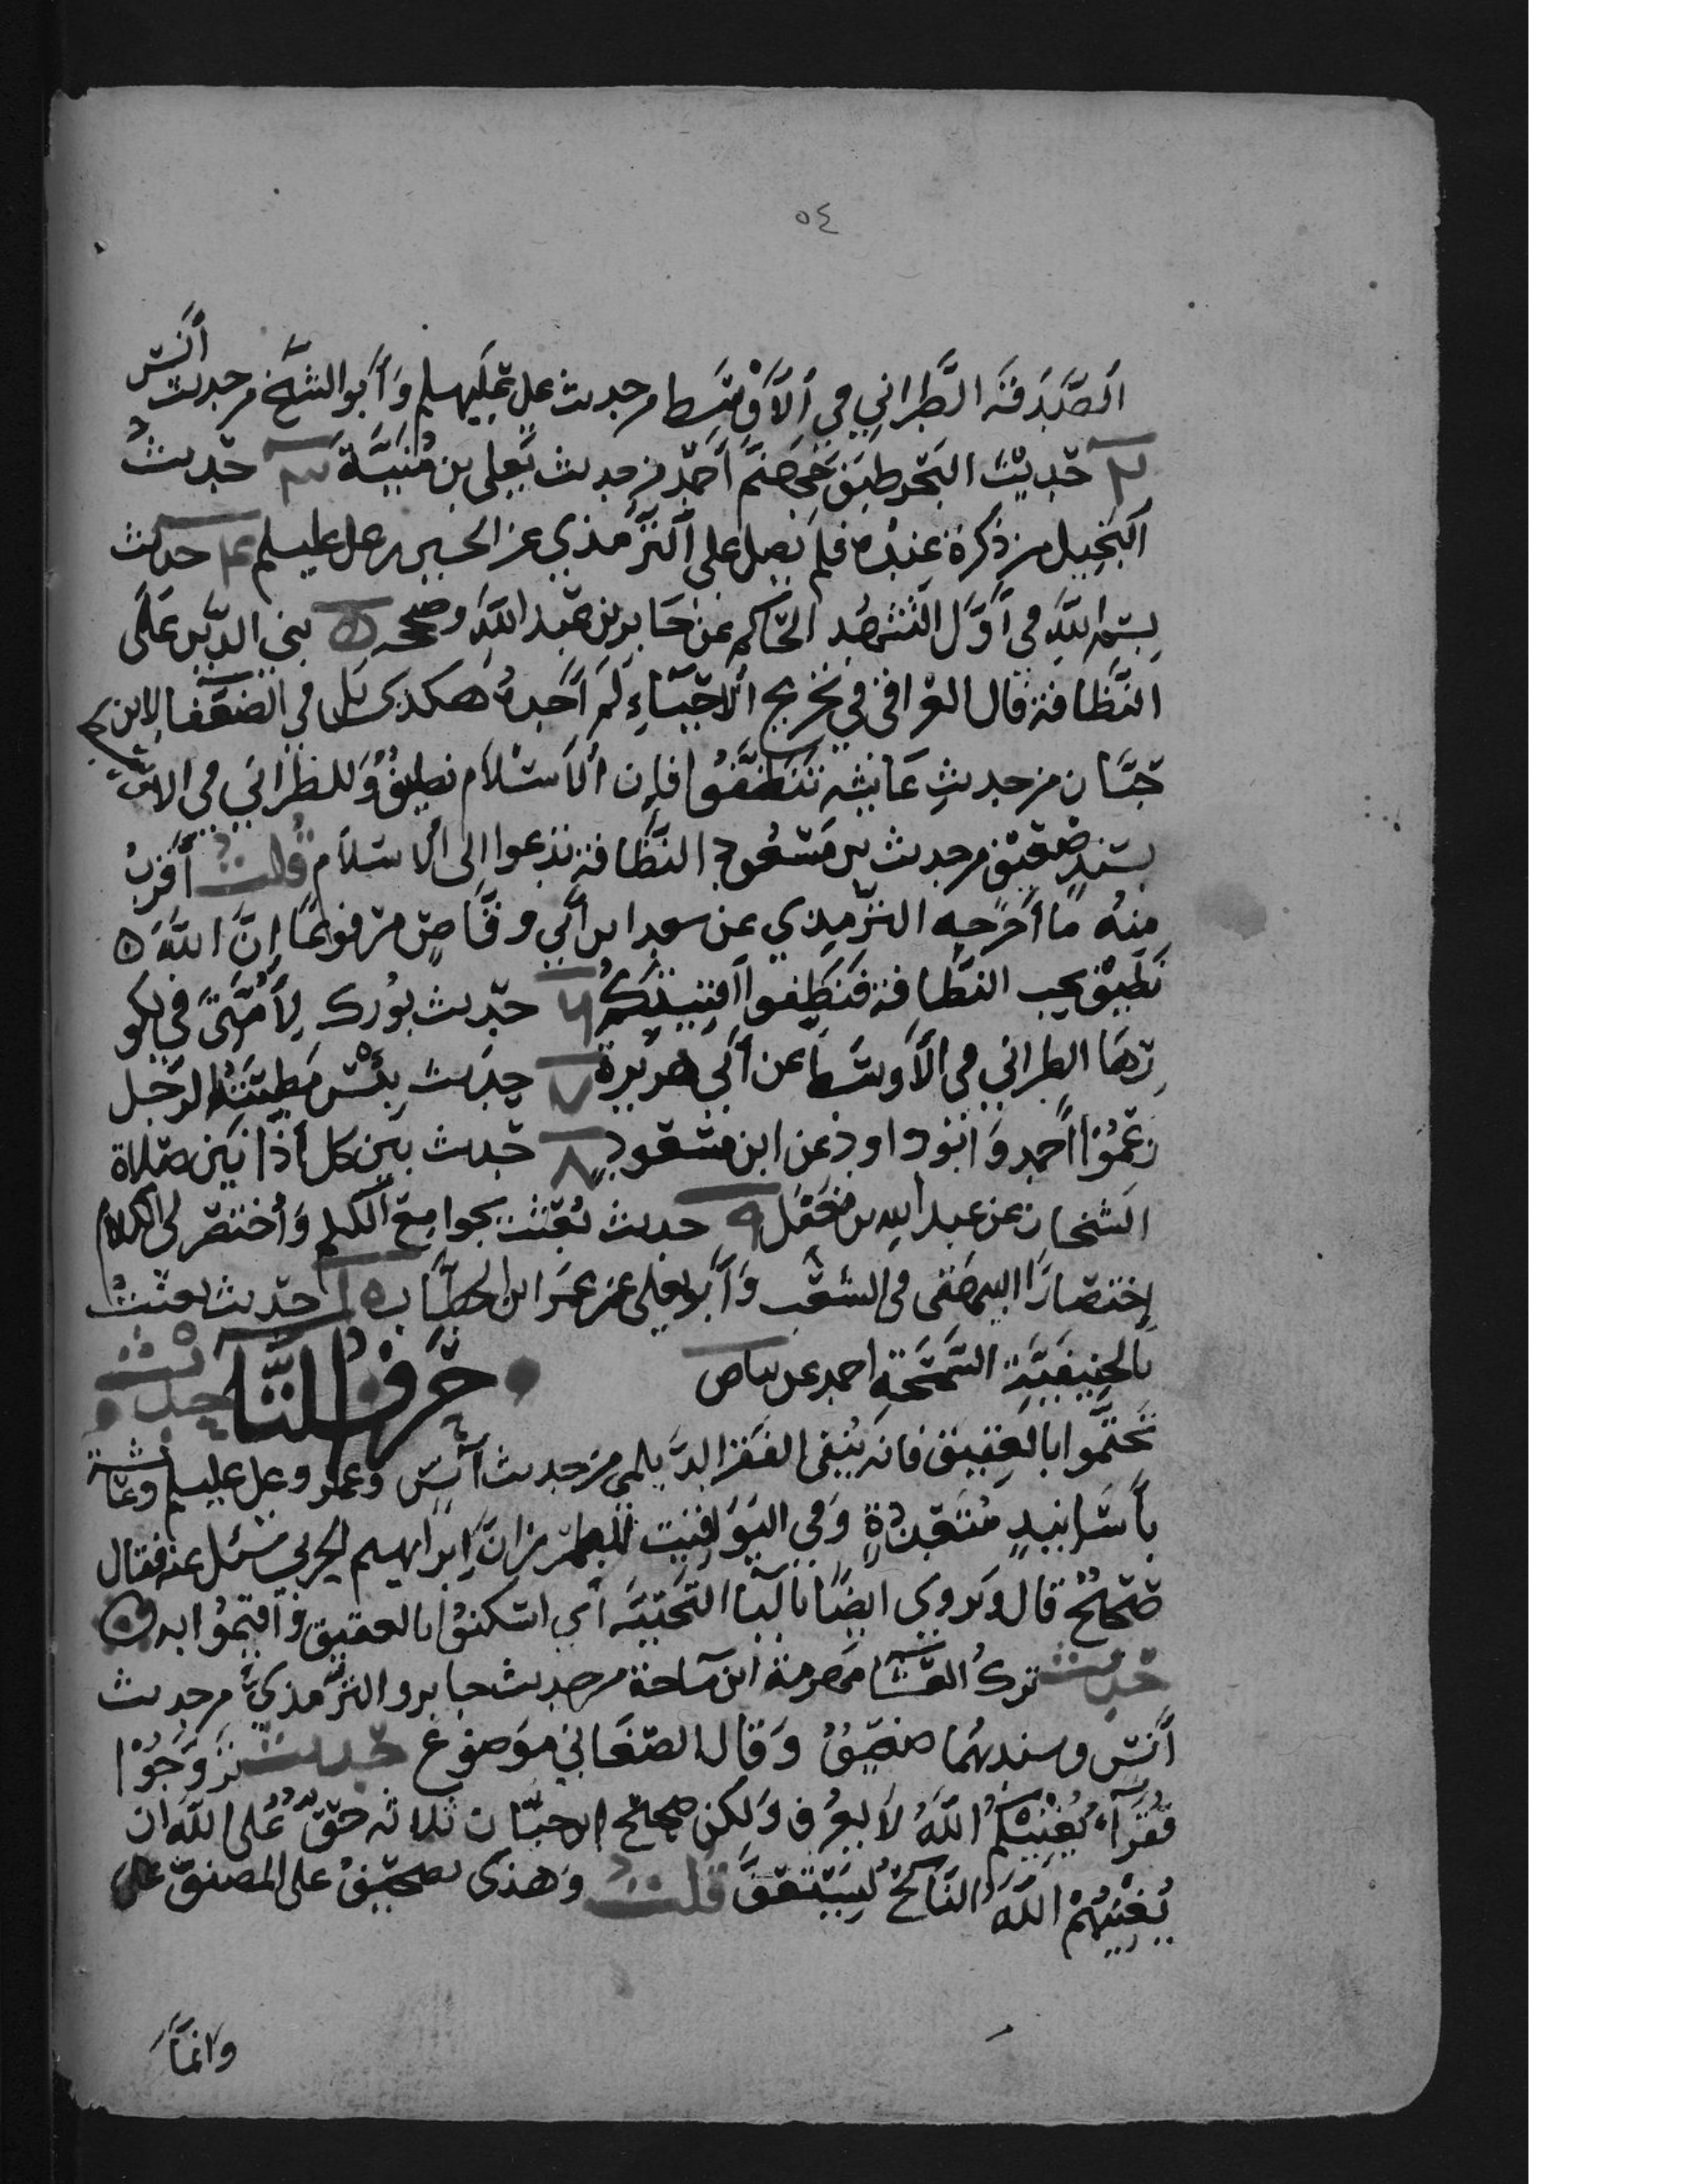 ٥٤
اَلصَّدَقَه الطَّبراني في اَلاَوْسَط من حديث علي عليه السلم وَاَبوالشَّيخ من حديث أنَس
٢ حَديث البَحر طبق جَهَنَّم اَحمد من حديث يَعلي بن مُنيَّة ٣ حَديث
اَلبَخِيل من ذكرة عِنده فلم يَصل علي اَلتِرّمذي عن الحسين رعلي عليسلم ٤ حديث
بِسم اللَّهِ في اَوَّل التَشهُد الحَاكم عن جَابر بن عَبد اللَّهِ وصححه ٥ بني الدّين عَلَى
النَّظافة قال العراقي في تخريج اَلاحيَاءِ لَم اَجدهُ هكذى بَل في الضعَفا لابن
حبَّان من حديث عَائشه تَنَظَّفُوا فان اَلاَسْلاَم نظيفُ وَللطَبراني في الاوسَط
بسَندٍ ضَعيف من حديث بن مَسعُود النَّظَافة تدعوا الي اَلاسَلاَم قُلت أقربُ
مِنهُ مَا اَخرَجه الترّمِذي عن سعد ابن اَبي وقَّاصٍ مَرفوعًا اِنَّ اللَّهَ ٥
نَظيف يحب النَّظافة فَنَظِفوا اَفنيتكُم ٦ حَديث بوُرك لِاُمَّتيَ في بكو
رِهَا الطبراني في الاَوسَط عن اَبي هريرة ٧ حِديث بِئسْ مَطِيَّةُ الرَجل
زعَمُوْا اَحمد وَابَوداود عن ابن مسَعود ٨ حَديث بَين كل أذَانَين صَلاة
الشَيخان عن عبد الله بن مغفَل ٩ حديث بُعِثت بجوامِعَ الكَلم وَأختصَر لي الكلام
اِختصَارَا البيهقى في الشعَب وَاَبو يعلي عن عمَر ابن الخطاب ٥ حَديث بعثتُ
بالحِنيفيَّةِ السَّمَحَةِ احمد عن
حَرفُ التَّا حديث
تَختَّموا بالعقيق فانه يَنفي الفقَر الدَّيلمي من حديث أنَس وعمَر وعلي عليسلم وعائشة
باَسَانيدٍ مُتَعَددةٍ وَفي اليَوَاقيت للمطرز انَّ اِبراهيم الحربي سئل عنه فقال
صَحيحُ قال وَيروي ايضًا بالَيا التَحتيَّه أي اسْكنُوا بالعقيق وَاَقيمُوا به ٥
حديث تركُ العَشَا مَهرمة ابن مَاجة من حديث جابر والترّمذيَّ من حديث
أنَس وسندهُما ضعيفُ وَقال الصَغَاني موَضوع حَديث تزوَّجُوْا
فُقَرآءَ يُغنِيكُمُ اللَّهُ لاَ يعُرف وَلكن صحيَح ابن حبَّان ثلاثه حَقٌ عَلى اللَّه ان
يُغنِيَهُمْ اللَّهُ النَاكحُ لِيَستَعفَّ قلت وَهذى تصحيفُ على المصنف
وَانمَّا